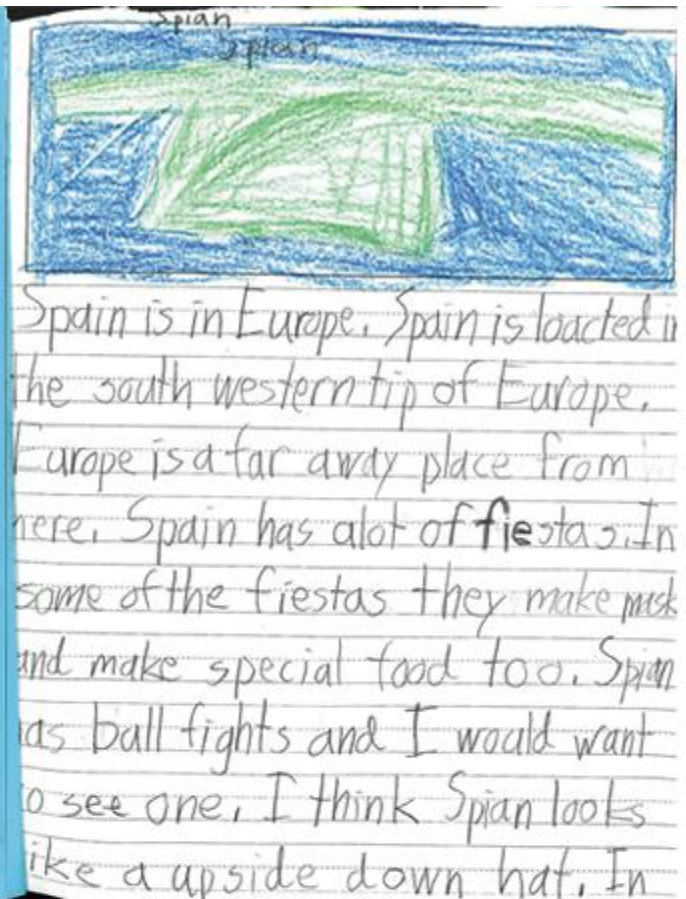 Spian
Spian
Spain is in Europe. Spain is loacted in
the south western tip of Europe.
Europe is a far away place from
here. Spain has alot of fiestas. In
some of the fiestas they make mask
and make special food too. Spian
has bull fights and I would want
to see one. I think Spian looks
like a upside down hat. In